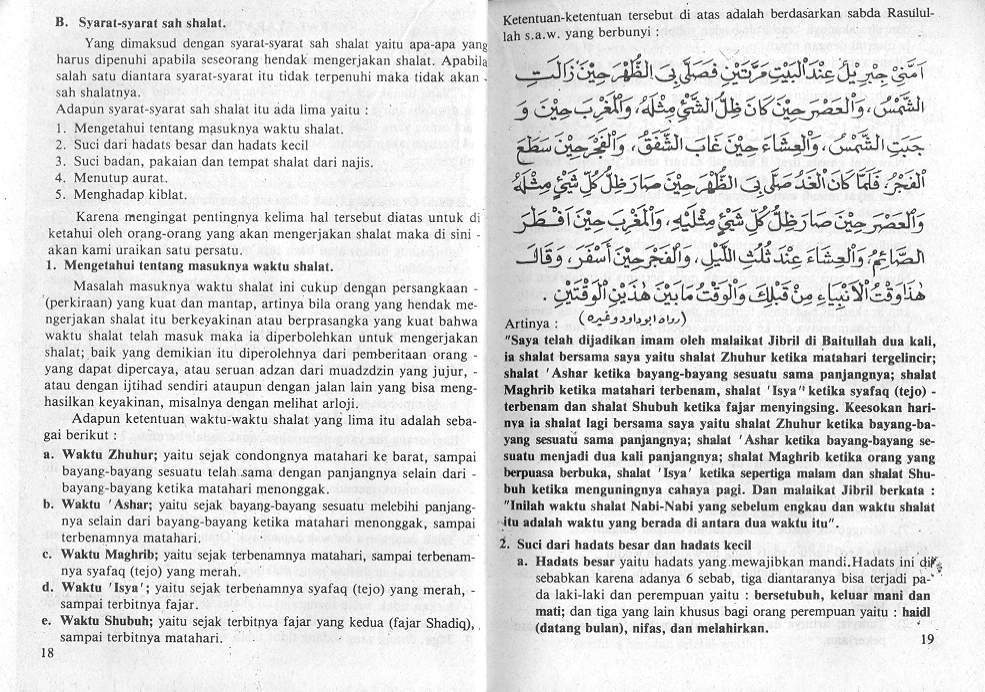 B. Syarat-syarat sah shalat.
Yang dimaksud dengan syarat-syarat sah shalat yaitu apa-apa yang
harus dipenuhi apabila seseorang hendak mengerjakan shalat. Apabila
salah satu diantara syarat-syarat itu tidak terpenuhi maka tidak akan
sah shalatnya.
Adapun syarat-syarat sah shalat itu ada lima yaitu :
1. Mengetahui tentang masuknya waktu shalat.
2. Suci dari hadats besar dan hadats kecil
3. Suci badan, pakaian dan tempat shalat dari najis.
4. Menutup aurat.
5. Menghadap kiblat.
Karena mengingat pentingnya kelima hal tersebut diatas untuk di
ketahui oleh orang-orang yang akan mengerjakan shalat maka di sini -
akan kami uraikan satu persatu.
1. Mengetahui tentang masuknya waktu shalat.
Masalah masuknya waktu shalat ini cukup dengan persangkaan -
(perkiraan) yang kuat dan mantap, artinya bila orang yang hendak me-
ngerjakan shalat itu berkeyakinan atau berprasangka yang kuat bahwa
waktu shalat telah masuk maka ia diperbolehkan untuk mengerjakan
shalat; baik yang demikian itu diperolehnya dari pemberitaan orang -
yang dapat dipercaya, atau seruan adzan dari muadzdzin yang jujur, -
atau dengan ijtihad sendiri ataupun dengan jalan lain yang bisa meng-
hasilkan keyakinan, misalnya dengan melihat arloji.
Adapun ketentuan waktu-waktu shalat yang lima itu adalah seba-
gai berikut :
a. Waktu Zhuhur; yaitu sejak condongnya matahari ke barat, sampai
bayang-bayang sesuatu telah sama dengan panjangnya selain dari -
bayang-bayang ketika matahari menonggak.
b. Waktu 'Ashar; yaitu sejak bayang-bayang sesuatu melebihi panjang-
nya selain dari bayang-bayang ketika matahari menonggak, sampai
terbenamnya matahari.
c. Waktu Maghrib; yaitu sejak terbenamnya matahari, sampai terbenam-
nya syafaq (tejo) yang merah.
d. Waktu 'Isya'; yaitu sejak terbenamnya syafaq (tejo) yang merah, -
sampai terbitnya fajar.
e. Waktu Shubuh; yaitu sejak terbitnya fajar yang kedua (fajar Shadiq),
sampai terbitnya matahari.
18
Ketentuan-ketentuan tersebut di atas adalah berdasarkan sabda Rasulul-
lah s.a.w. yang berbunyi :
أَمَّنِيْ جِبْرِيْلُ عِنْدَ الْبَيْتِ مَرَّتَيْنِ فَصَلَّى بِيَ الظُّهْرَ حِيْنَ زَالَتِ
الشَّمْسُ، وَالْعَصْرَ حِيْنَ كَانَ ظِلُّ الشَّيْئِ مِثْلَهُ، وَالْمَغْرِبَ حِيْنَ وَ
جَبَتِ الشَّمْسُ، وَالْعِشَاءَ حِيْنَ غَابَ الشَّفَقُ، وَالْفَجْرَ حِيْنَ سَطَعَ
الْفَجْرُ، فَلَمَّا كَانَ الْغَدُ صَلَّى بِيَ الظُّهْرَ حِيْنَ صَارَ ظِلُّ كُلِّ شَيْئٍ مِثْلَهُ
وَالْعَصْرَ حِيْنَ صَارَ ظِلُّ كُلِّ شَيْئٍ مِثْلَيْهِ، وَالْمَغْرِبَ حِيْنَ أَفْطَرَ
الصَّائِمُ، وَالْعِشَاءَ عِنْدَ ثُلُثِ اللَّيْلِ، وَالْفَجْرَ حِيْنَ أَسْفَرَ، وَقَالَ
هٰذَا وَقْتُ الْأَنْبِيَاءِ مِنْ قَبْلِكَ وَالْوَقْتُ مَابَيْنَ هٰذَيْنِ الْوَقْتَيْنِ .
(رواه ابو داود وغيره)
Artinya :
"Saya telah dijadikan imam oleh malaikat Jibril di Baitullah dua kali,
ia shalat bersama saya yaitu shalat Zhuhur ketika matahari tergelincir;
shalat 'Ashar ketika bayang-bayang sesuatu sama panjangnya; shalat
Maghrib ketika matahari terbenam, shalat 'Isya'' ketika syafaq (tejo) -
terbenam dan shalat Shubuh ketika fajar menyingsing. Keesokan hari-
nya ia shalat lagi bersama saya yaitu shalat Zhuhur ketika bayang-ba-
yang sesuatu sama panjangnya; shalat 'Ashar ketika bayang-bayang se-
suatu menjadi dua kali panjangnya; shalat Maghrib ketika orang yang
berpuasa berbuka, shalat 'Isya' ketika sepertiga malam dan shalat Shu-
buh ketika menguningnya cahaya pagi. Dan malaikat Jibril berkata :
"Inilah waktu shalat Nabi-Nabi yang sebelum engkau dan waktu shalat
itu adalah waktu yang berada di antara dua waktu itu".
2. Suci dari hadats besar dan hadats kecil
a. Hadats besar yaitu hadats yang mewajibkan mandi. Hadats ini di
sebabkan karena adanya 6 sebab, tiga diantaranya bisa terjadi pa-
da laki-laki dan perempuan yaitu : bersetubuh, keluar mani dan
mati; dan tiga yang lain khusus bagi orang perempuan yaitu : haidl
(datang bulan), nifas, dan melahirkan.
19